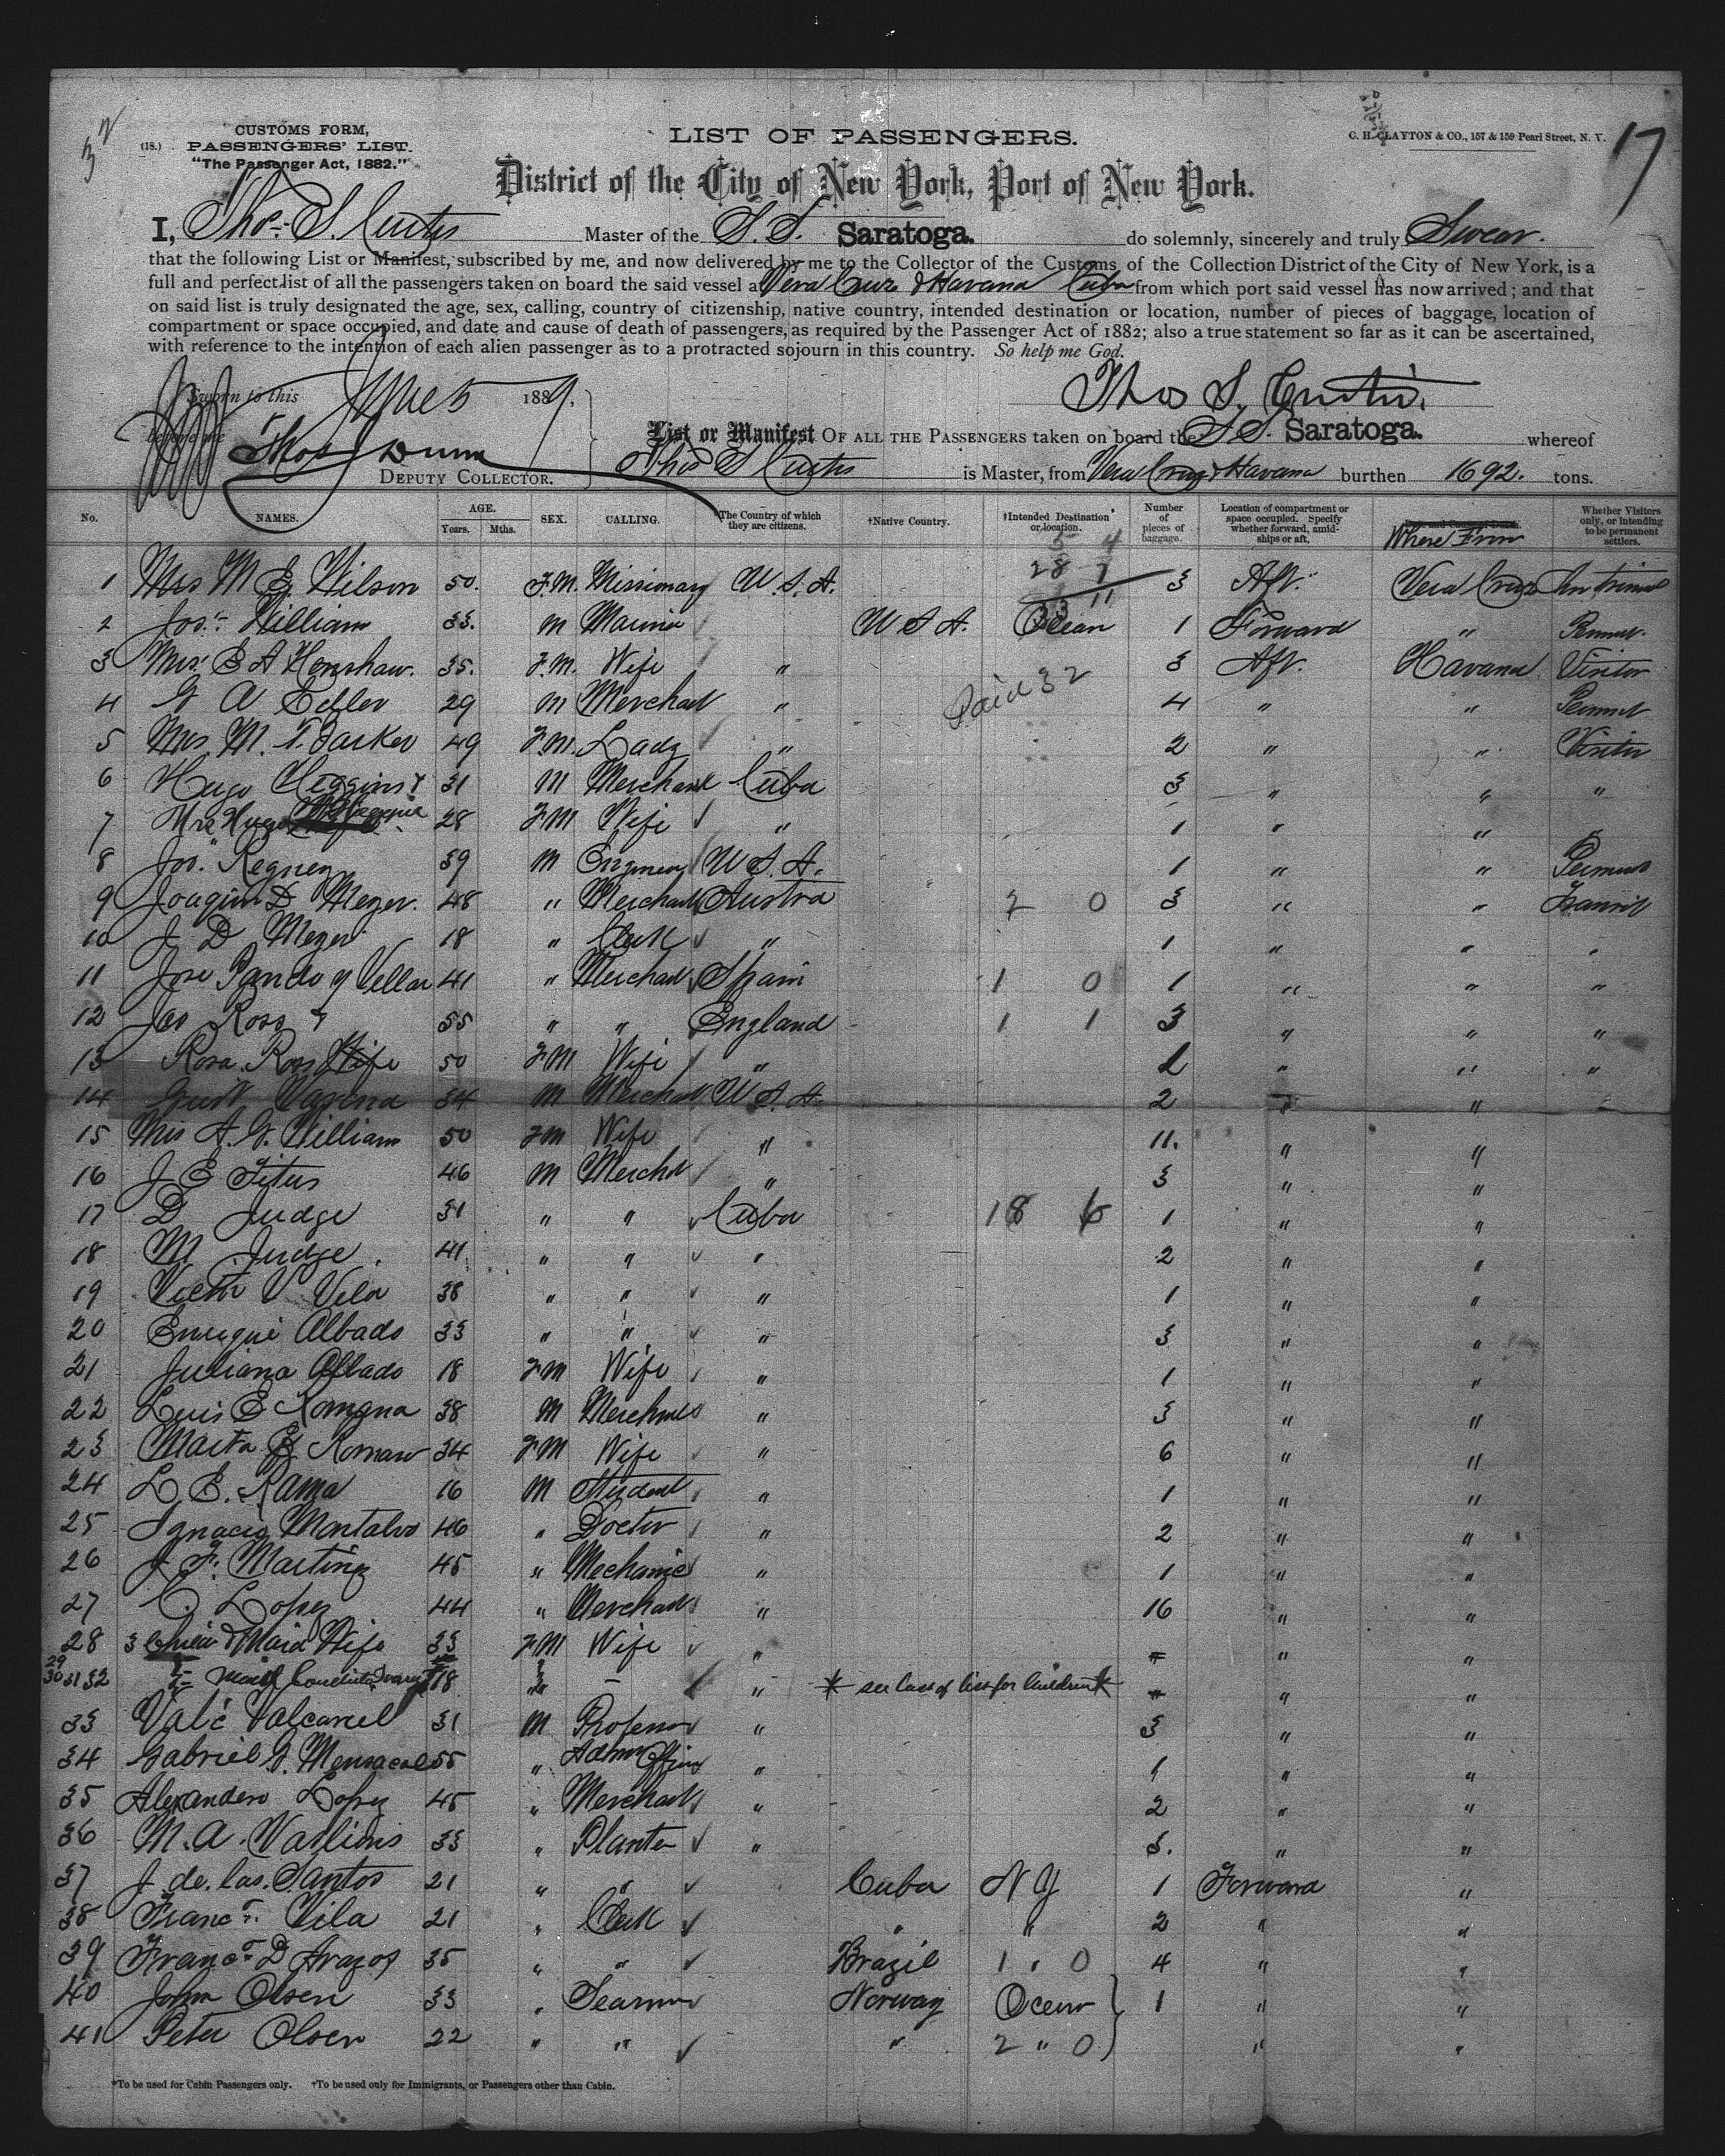 32
17
(18.)
CUSTOMS FORM,
PASSENGERS' LIST.
"The Passenger Act, 1882."
LIST OF PASSENGERS.
C. H. CLAYTON & CO., 157 & 159 Pearl Street, N. Y.
District of the City of New York, Port of New York.
I, Thos S. Curtis Master of the S.S. Saratoga. do solemnly, sincerely and truly Swear.
that the following List or Manifest, subscribed by me, and now delivered by me to the Collector of the Customs of the Collection District of the City of New York, is a
full and perfect list of all the passengers taken on board the said vessel at Vera Cruz & Havana Cuba from which port said vessel has now arrived; and that
on said list is truly designated the age, sex, calling, country of citizenship, native country, intended destination or location, number of pieces of baggage, location of
compartment or space occupied, and date and cause of death of passengers, as required by the Passenger Act of 1882; also a true statement so far as it can be ascertained,
with reference to the intention of each alien passenger as to a protracted sojourn in this country. So help me God.
Sworn to this June 5 1889,
Thos S. Curtis.
before me Thos J Dunn
DEPUTY COLLECTOR.
List or Manifest OF ALL THE PASSENGERS taken on board the S.S. Saratoga. whereof
Thos S Curtis is Master, from Vera Cruz & Havana burthen 1692. tons.
No. NAMES. AGE. Years. Mths. SEX. CALLING. *The Country of which they are citizens. †Native Country. †Intended Destination or location. Number of pieces of baggage. Location of compartment or space occupied. Specify whether forward, amidships or aft. Where From Whether Visitors only, or intending to be permanent settlers.
5 4
28 7
33 11
1 Mrs M E Wilson 50. F.M. Missionary U.S.A. 3 Aft. Vera Cruz
2 Jos. William 33. M U S A. Ocean 1 Forward "
3 Mrs E A Henshaw. 35. F.M. Wife " 3 Aft. Havana Visitor
Paid 32
4 29 M Merchant " 4 " "
5 Mrs. M. T. Parker 49 F.M. Lady " 2 " " Visitor
6 Hugo Higgins 31 M Merchant Cuba 3 " " "
7 Mrs Hugo 28 F M Wife " 1 " " "
8 Jos. Regney 39 M Engineer U S. A. 1 " "
9 Joaquin D Meyer. 48 " Merchant Austra 2 0 3 " " Transit
10 J D Meyer 18 " Clerk " 1 " " "
11 Jose Pando y Vellar 41 " Merchant Spain 1 0 1 " " "
12 Jas Ross & 55 " " England 1 1 3 " " "
13 Rosa Ross Wife 50 F M Wife " 1 " " "
14 34 M Merchant U S. A. 2 " " "
15 Mrs A. G. William 50 F M Wife " 11. " "
16 J E Titus 46 M Mercht " 3 " "
17 D Judge 31 " " Cuba 18 6 1 " "
18 M Judge. 41 " " " 2 " "
19 Victor V Vila 38 " " " 1 " "
20 Enrique Albado 33 " " " 3 " "
21 Juliana Albado 18 F M Wife " 1 " "
22 Luis E Romgna 38 M Merchant " 3 " "
23 Marta 34 F M Wife " 6 " "
24 L. E. Rama 16 M Student " 1 " "
25 Ignacio Montalvo 46 " Doctor " 2 " "
26 J. F. Martinz 45 " Mechanic " 1 " "
27 C. Lopez 44 " Merchant " 16 " "
28 3 Child & Maid Wife 33 F M Wife " " "
29 30 31 32 Maid 18 " - " * see last of list for Children * " "
33 Valé Valcarcel 31 M Professor " 3 " "
34 Gabriel G. Mensacal 55 " " 1 " "
35 Alexandero Lopez 45 " Merchant " 2 " "
36 M. A. 33 " Planter " 3. " "
37 J. de. las. Santos 21 " " Cuba N Y 1 Forward "
38 Franc. Vila 21 " Clerk " " 2 " "
39 Franc. D Arazos 35 " " Brazil 1 " 0 4 " "
40 John Olsen 33 " Seaman Norway Ocean 1 " "
41 Peter Olsen 22 " " " 2 " 0 " "
*To be used for Cabin Passengers only. †To be used only for Immigrants, or Passengers other than Cabin.